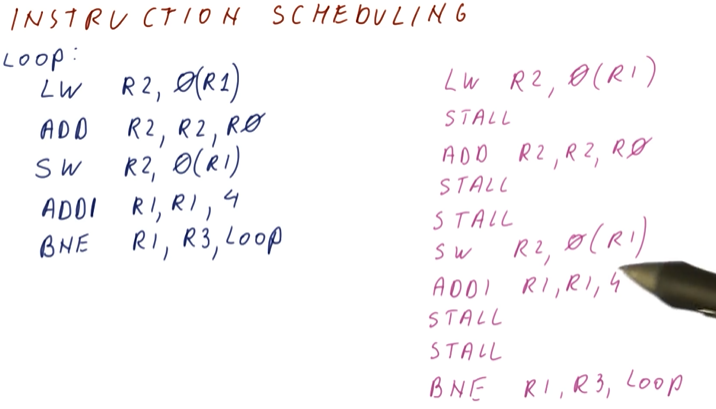 INSTRUCTION SCHEDULING
LOOP:
LW R2, 0(R1)
ADD R2, R2, R0
SW R2, 0(R1)
ADDI R1, R1, 4
BNE R1, R3, LOOP
LW R2, 0(R1)
STALL
ADD R2, R2, R0
STALL
STALL
SW R2, 0(R1)
ADDI R1, R1, 4
STALL
STALL
BNE R1, R3, LOOP